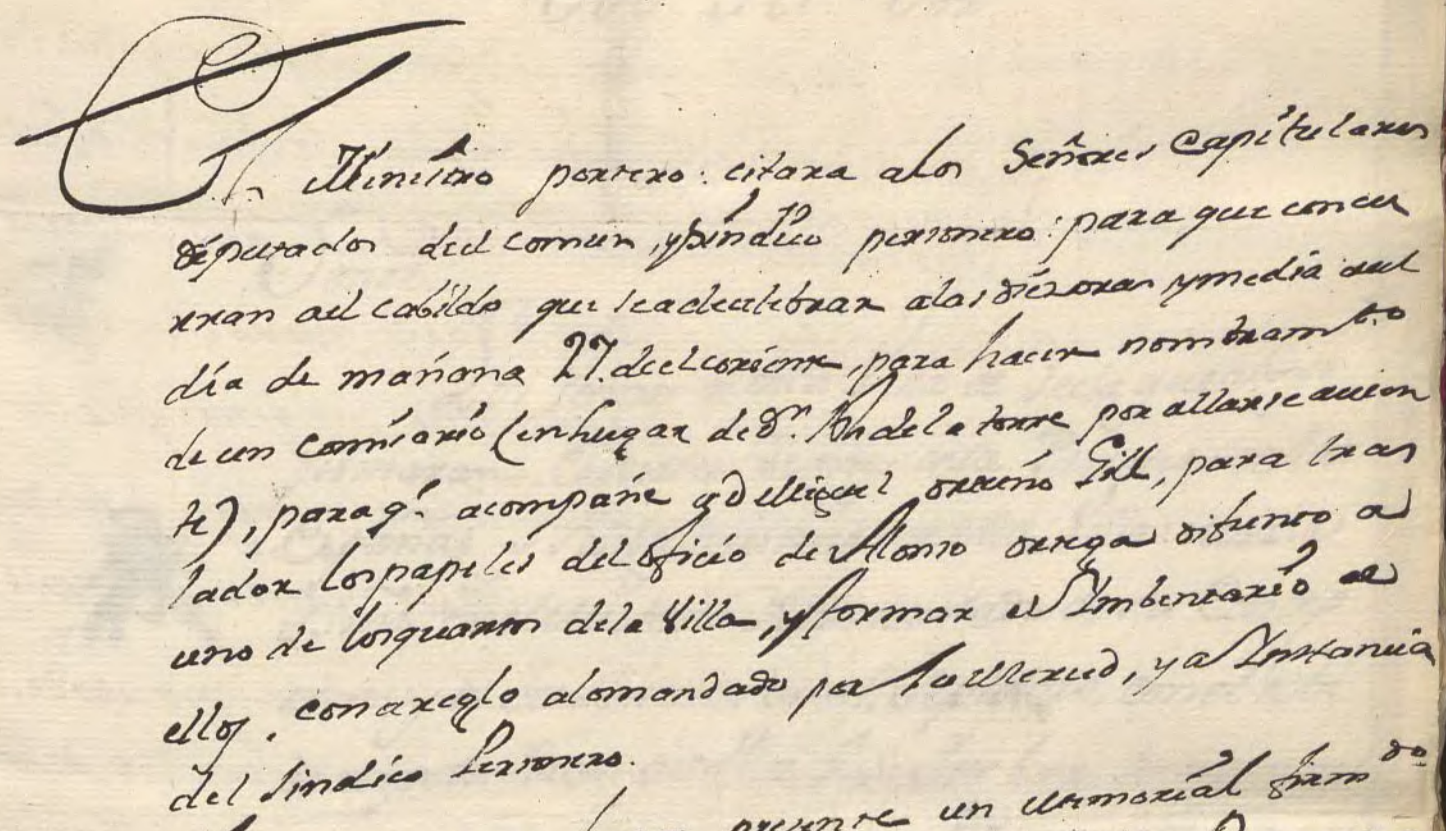 El Ministro portero: citara alos Señores Capitulares
diputados del comun, y Sindico personero: para que concu
rran ael cabildo que seadecelebrar alas diezoras ymedia del
dia de mañana 27. deelcoriente, para hacer nombram.to
deun comisario (enlugar de Dn. de la torre por allarse aucen
te), paraq.e acompañe a D Miguel treviño Gill, para tras
ladar lospapeles del oficio de Alonso ortega difunto a
uno de losquartos dela Villa, y formar el Imbentario de
ellos, conareglo alomandado por su Merced, ya Instancia
del Sindico Personero.
presente un memorial firm.do